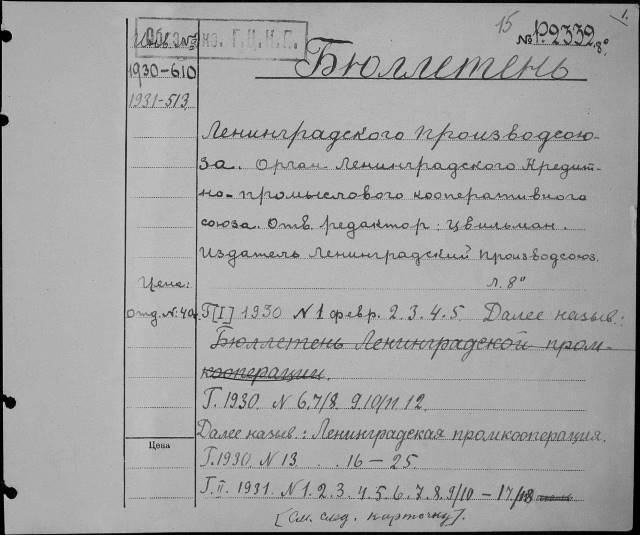 1.
15
№ P.2332 8°
Обяз. экз. Г.Ц.К.П.
Инв. №
Бюллетень
1930-610
1931-513
Ленинградского Производсою-
за. Орган Ленинградского Кредит-
но-промыслового кооперативного
союза. Отв. редактор: Цвильман.
Издатель Ленинградский Производсоюз.
Л. 8°
Цена:
отд. №: 40к.
Г[I] 1930 N 1 февр. 2. 3. 4. 5. Далее назыв.:
Бюллетень Ленинградской пром-
кооперации.
Г. 1930. N 6. 7/8. 9. 10/11. 12.
Далее назыв.: Ленинградская промкооперация.
Цена
Г. 1930. N 13. . . 16 — 25.
Г. II. 1931. N 1. 2. 3. 4. 5. 6. 7. 8. 9/10 — 17/18
[См. след. карточку].